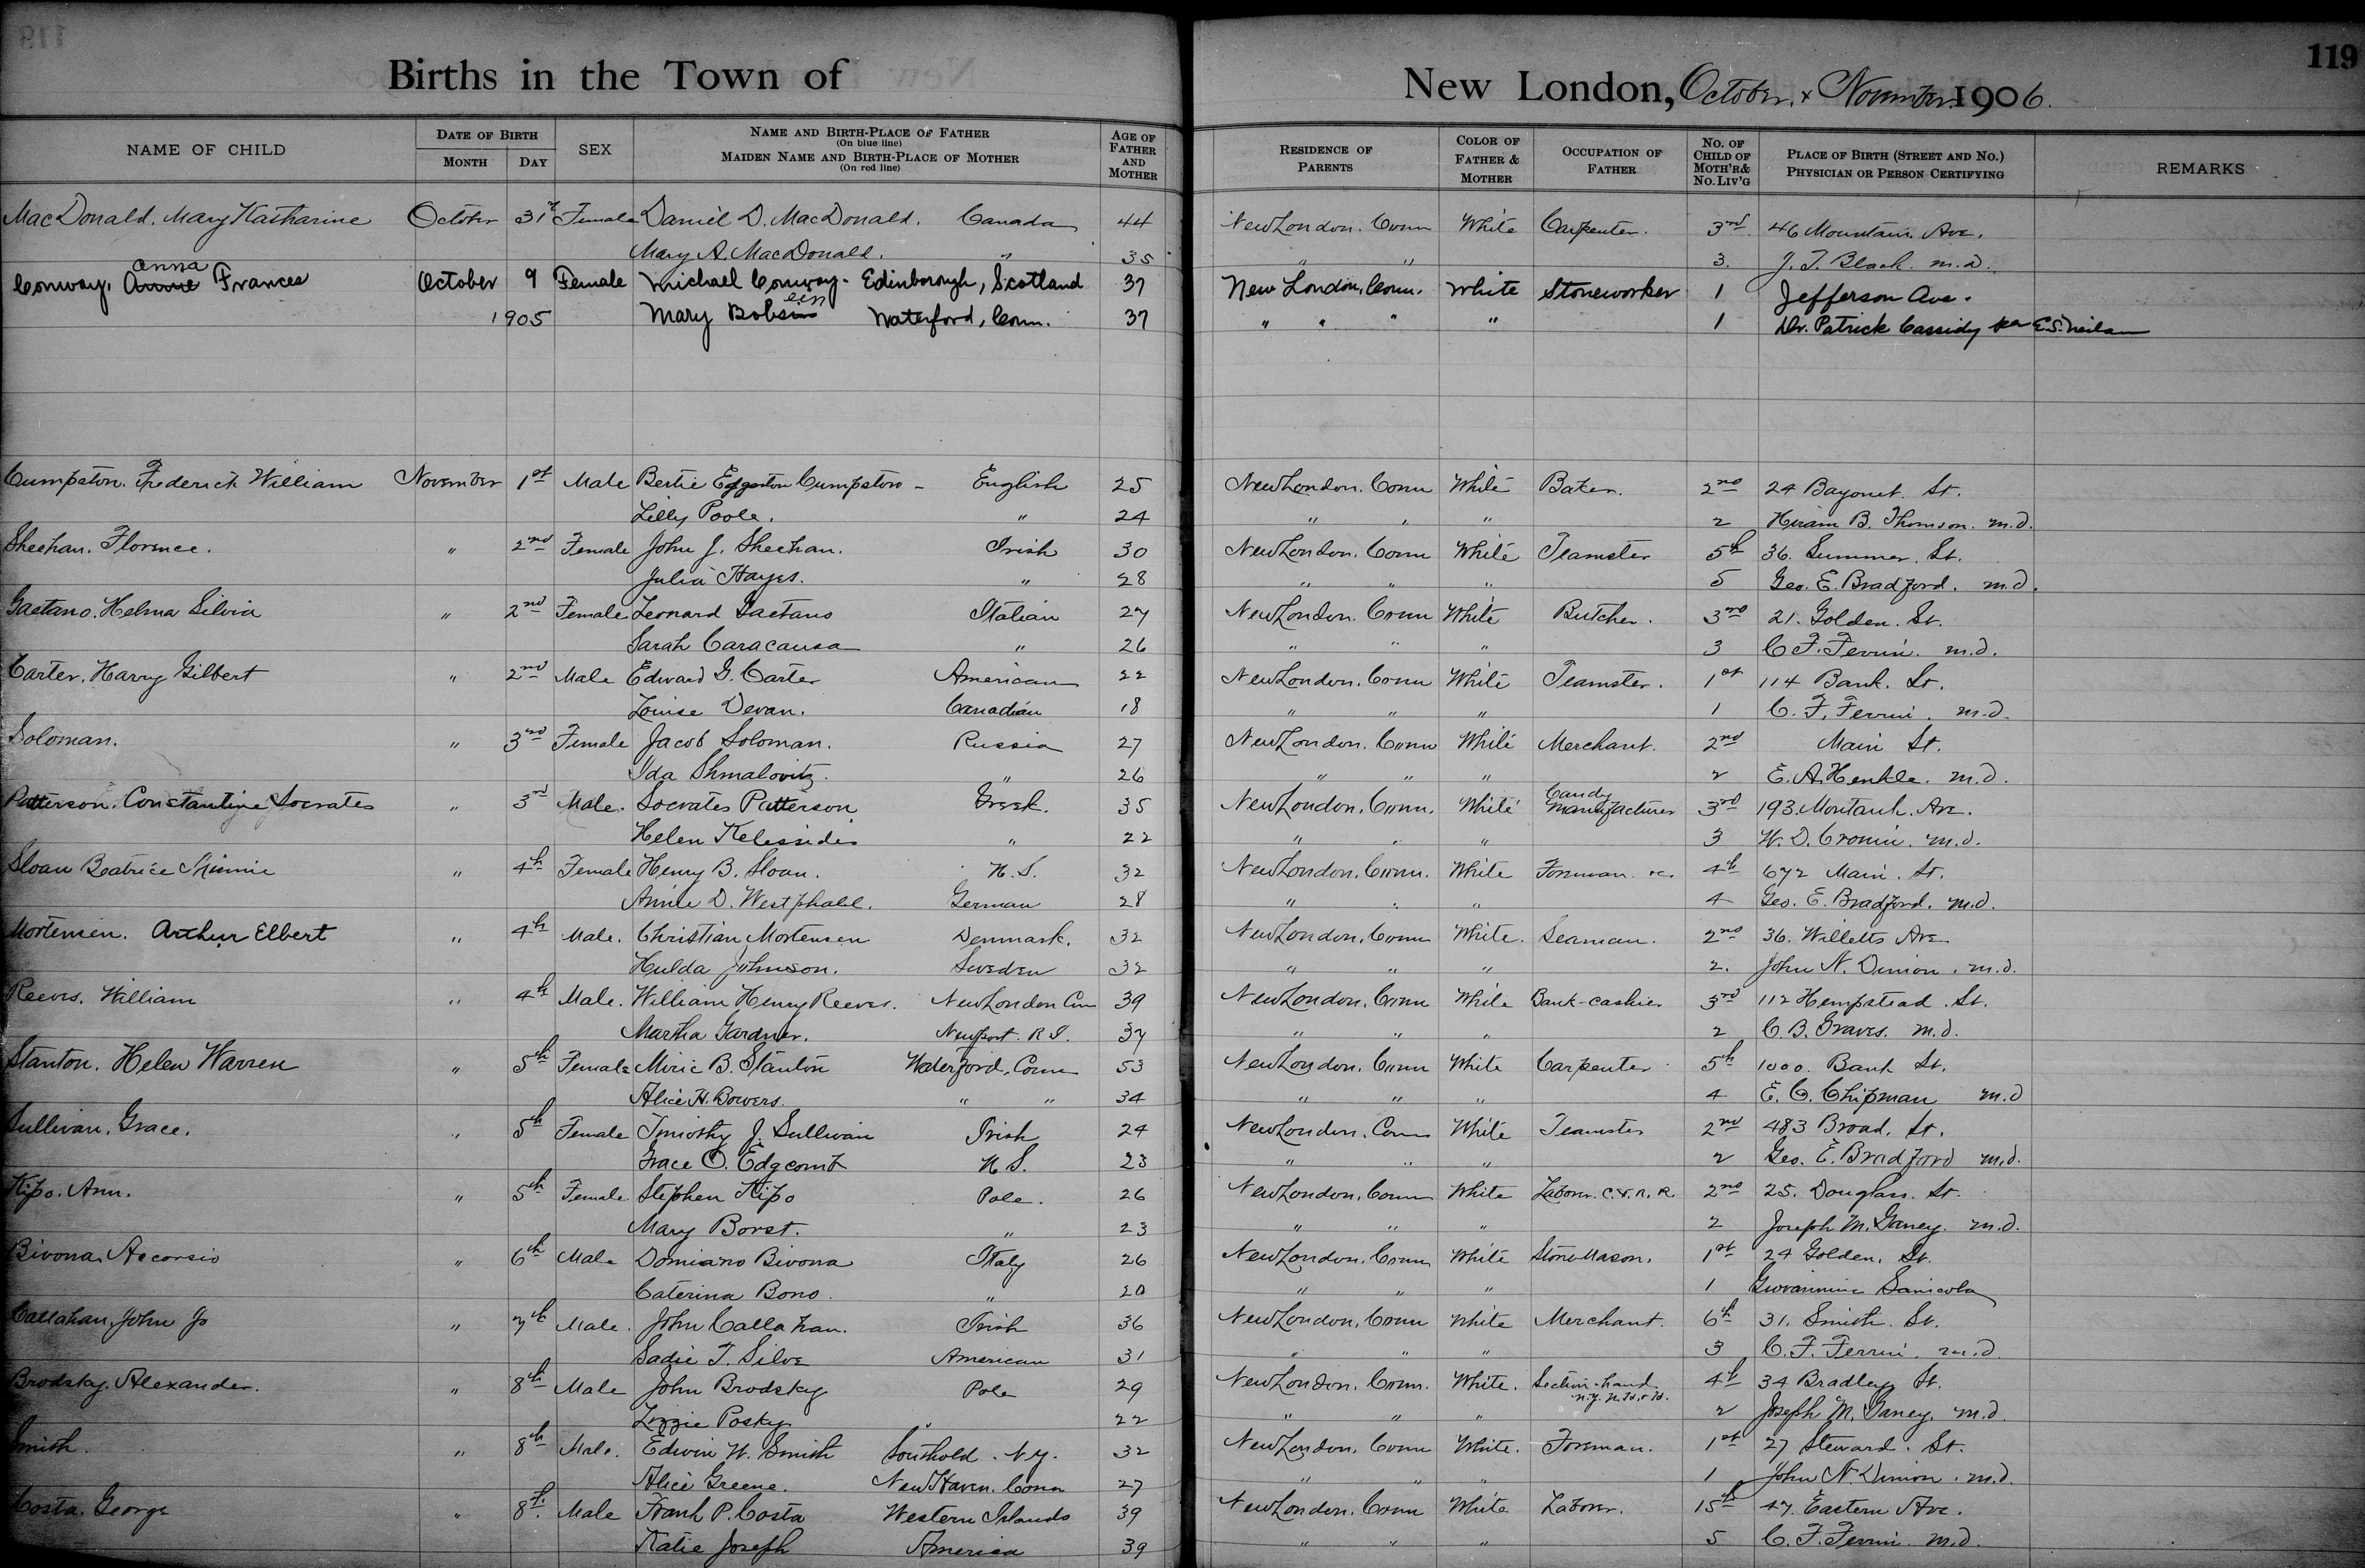 119
Births in the Town of New London, October & November 1906.
NAME OF CHILD
DATE OF BIRTH
MONTH DAY
SEX
NAME AND BIRTH-PLACE OF FATHER
(On blue line)
MAIDEN NAME AND BIRTH-PLACE OF MOTHER
(On red line)
AGE OF FATHER AND MOTHER
RESIDENCE OF PARENTS
COLOR OF FATHER & MOTHER
OCCUPATION OF FATHER
NO. OF CHILD OF MOTH'R & NO. LIV'G
PLACE OF BIRTH (STREET AND NO.)
PHYSICIAN OR PERSON CERTIFYING
REMARKS
MacDonald. Mary Katharine October 31st Female Daniel D. MacDonald. Canada 44 New London. Conn White Carpenter. 3rd 46 Mountain Ave.
Mary A. MacDonald. " 35 " " 3. J. T. Black. m.d.
Anna
Conway. Annie Frances October 9 Female Michael Conway - Edinborough, Scotland 37 New London, Conn. White Stoneworker 1 Jefferson Ave.
1905 Mary Bobsin een Waterford, Conn. 37 " " " " 1 Dr. Patrick Cassidy per E.S.
Cumpston. Frederick William November 1st Male Bertie Edgerton Cumpston - English 25 New London. Conn White Baker. 2nd 24 Bayonet. St.
Lilly Poole. " 24 " " " 2 Hiram B. Thomson. m.d.
Sheehan. Florence. " 2nd Female John J. Sheehan. Irish 30 New London. Conn White Teamster 5th 36. Summer. St.
Julia Hayes. " 28 " " " 5 Geo. E. Bradford. m.d.
Gaetano. Helma Silvia " 2nd Female Leonard Gaetano Italian 27 New London. Conn White Butcher. 3rd 21. Golden. St.
Sarah Caracausa " 26 " " " 3 C. F. Ferrin. m.d.
Carter. Harry Gilbert " 2nd Male Edward G. Carter American 22 New London. Conn White Teamster. 1st 114 Bank. St.
Louise Devan. Canadian 18 " " " 1 C. F. Ferrin. m.d.
Soloman. " 3rd Female Jacob Soloman. Russia 27 New London. Conn White Merchant. 2nd Main St.
Ida Shmalovitz. " 26 " " " 2 E. A. Henkle. m.d.
Patterson. Constantine Socrates " 3rd Male. Socrates Patterson Greek. 35 New London. Conn. White Candy Manufacturer 3rd 193. Montauk. Ave.
Helen Kelessidis " 22 " " " 3 W. D. Cronin. m.d.
Sloan Beatrice Minnie " 4th Female Henry B. Sloan. U.S. 32 New London. Conn. White Foreman 4th 672 Main. St.
Annie D. Westphall. German 28 " " " 4 Geo. E. Bradford. m.d.
Mortensen. Arthur Elbert " 4th Male. Christian Mortensen Denmark. 32 New London. Conn White. Seaman. 2nd 36. Willetts Ave
Hulda Johnson. Sweden 32 " " " 2. John N. Dimon. m.d.
Reeves. William " 4th Male. William Henry Reeves. New London Conn 39 New London. Conn White Bank-cashier 3rd 112 Hempstead. St.
Martha Gardner. Newport. R.I. 37 " " " 2 C. B. Graves. m.d.
Stanton. Helen Warren " 5th Female B. Stanton Waterford, Conn 53 New London. Conn White Carpenter 5th 1000. Bank St.
Alice H. Bowers. " " 34 " " " 4 E. C. Chipman m.d
Sullivan. Grace. " 5th Female Timothy J. Sullivan Irish 24 New London. Conn White Teamster 2nd 483 Broad. St.
Grace O. Edgcomb U.S. 23 " " " 2 Geo. E. Bradford m.d.
Kipo. Ann. " 5th Female. Stephen Kipo Pole. 26 New London. Conn White Labor. C.V.R.R. 2nd 25. Douglass. St.
Mary Borst. " 23 " " " 2 Joseph M. Ganey. m.d.
Bivona. Accorsio " 6th Male Domiano Bivona Italy 26 New London. Conn White Stone Mason. 1st 24 Golden. St.
Caterina Bono. " 20 " " " 1 Giovannina Sanicola
Callahan. John Jo " 7th Male. John Callahan. Irish 36 New London. Conn White Merchant. 6th 31. Smith. St.
Sadie T. Silva American 31 " " " 3 C. F. Ferrin. m.d
Brodsky. Alexander. " 8th Male John Brodsky Pole 29 New London. Conn. White. Section-hand 4th 34 Bradley St.
Lizzie Posky " 22 " " " 2 Joseph M. Ganey. m.d
Smith. " 8th Male. Edwin W. Smith Southold. N.Y. 32 New London. Conn White. Foreman. 1st 27 Steward. St.
Alice Greene. New Haven. Conn 27 " " " 1 John N. Dimon. m.d.
Costa. George " 8th. Male Frank P. Costa Western Islands 39 New London. Conn White Laborer. 15th 47. Eastern Ave.
Katie Joseph America 39 " " " 5 C. F. Ferrin. m.d.